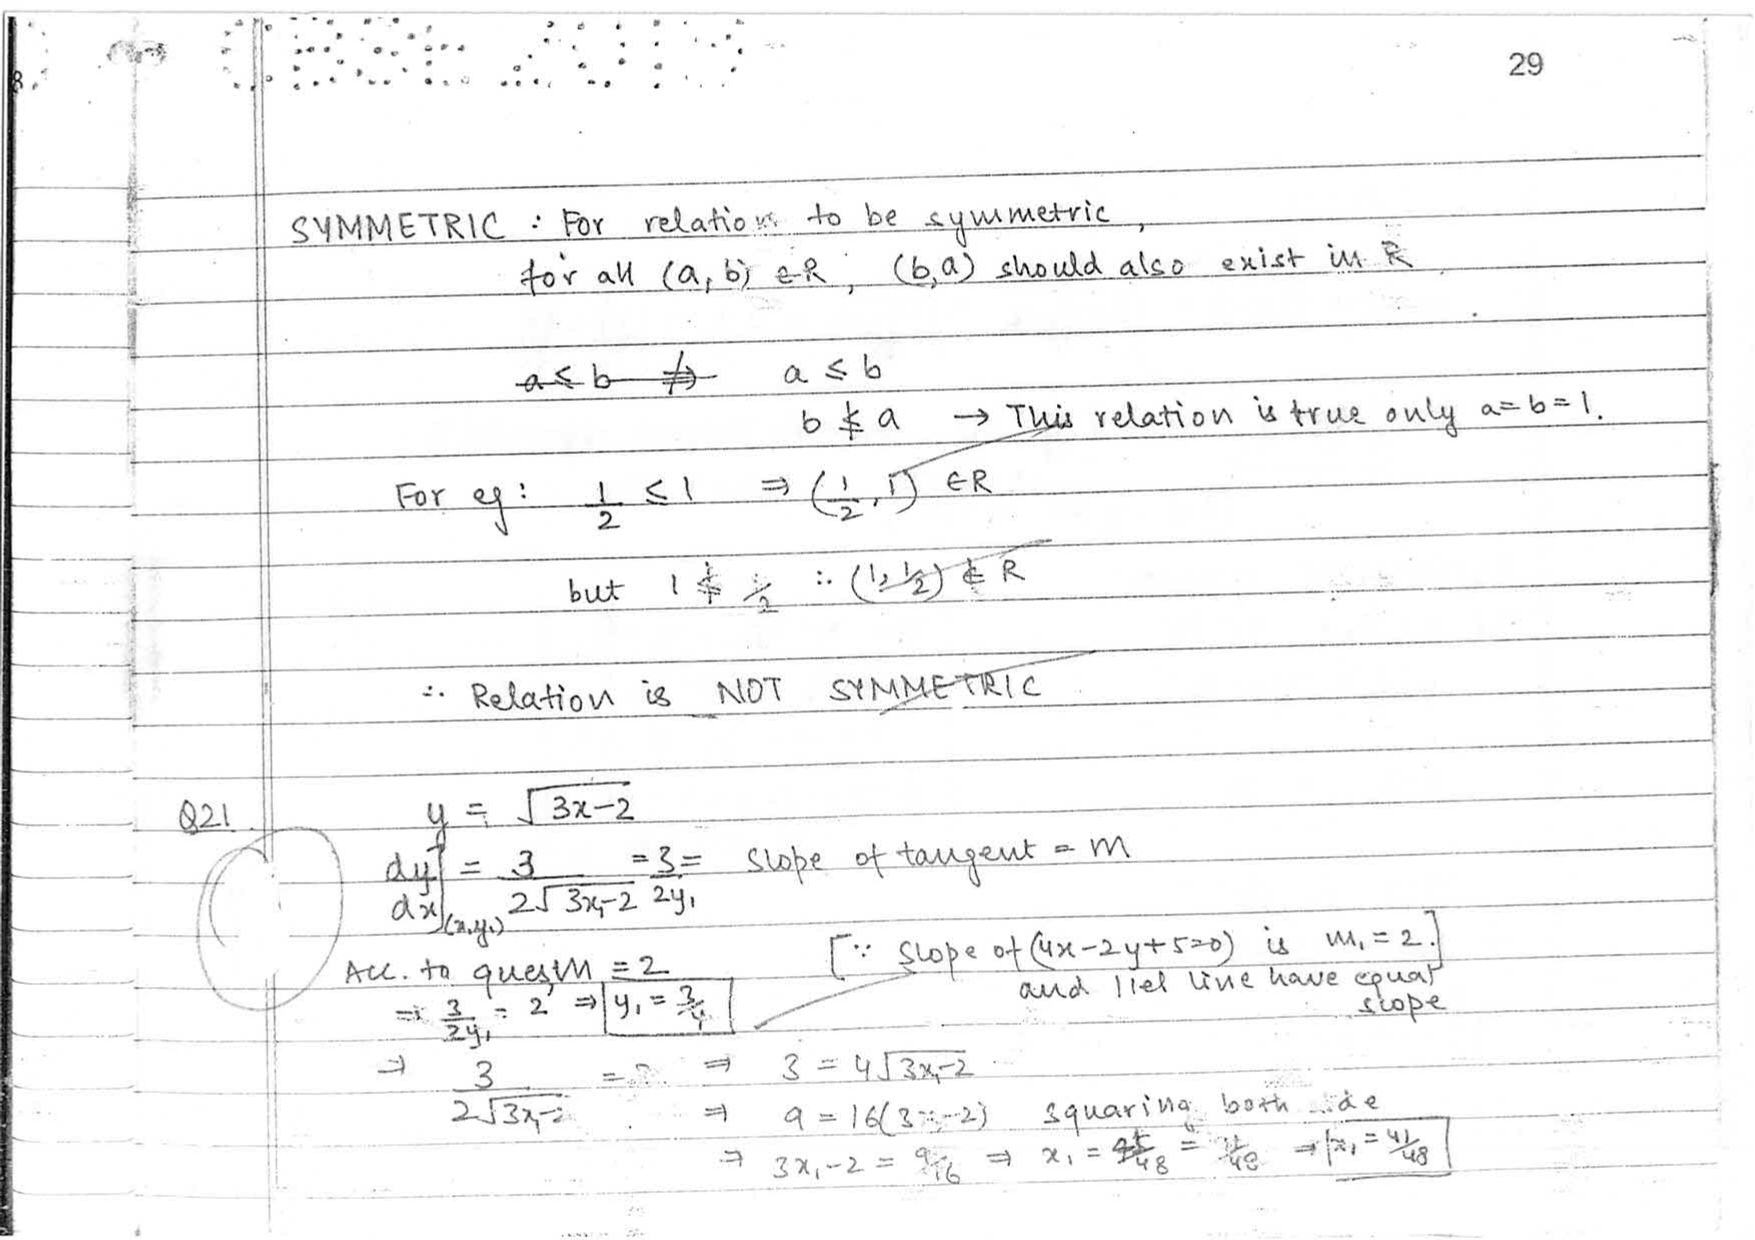 29
SYMMETRIC : For relation to be symmetric,
for all (a, b) ∈R, (b,a) should also exist in R
a≤b ⇏ a ≤ b
b ≰ a → This relation is true only a=b=1.
For eg: 1/2 ≤ 1 ⇒ (1/2, 1) ∈R
but 1 ≰ 1/2 ∴ (1, 1/2) ∉ R
∴ Relation is NOT SYMMETRIC
Q21 y = √(3x-2)
dy/dx](x₁,y₁) = 3/(2√(3x₁-2)) = 3/(2y₁) = slope of tangent = m
[∵ slope of (4x-2y+5=0) is m₁ = 2.]
Acc. to ques, m = 2
and llel line have equal
slope
⇒ 3/(2y₁) = 2 ⇒ y₁ = 3/4
⇒ 3/(2√(3x₁-2)) = ⇒ 3 = 4√(3x₁-2)
⇒ 9 = 16(3x₁-2) squaring both side
⇒ 3x₁-2 = 9/16 ⇒ x₁ = 41/48 ⇒ x₁ = 41/48